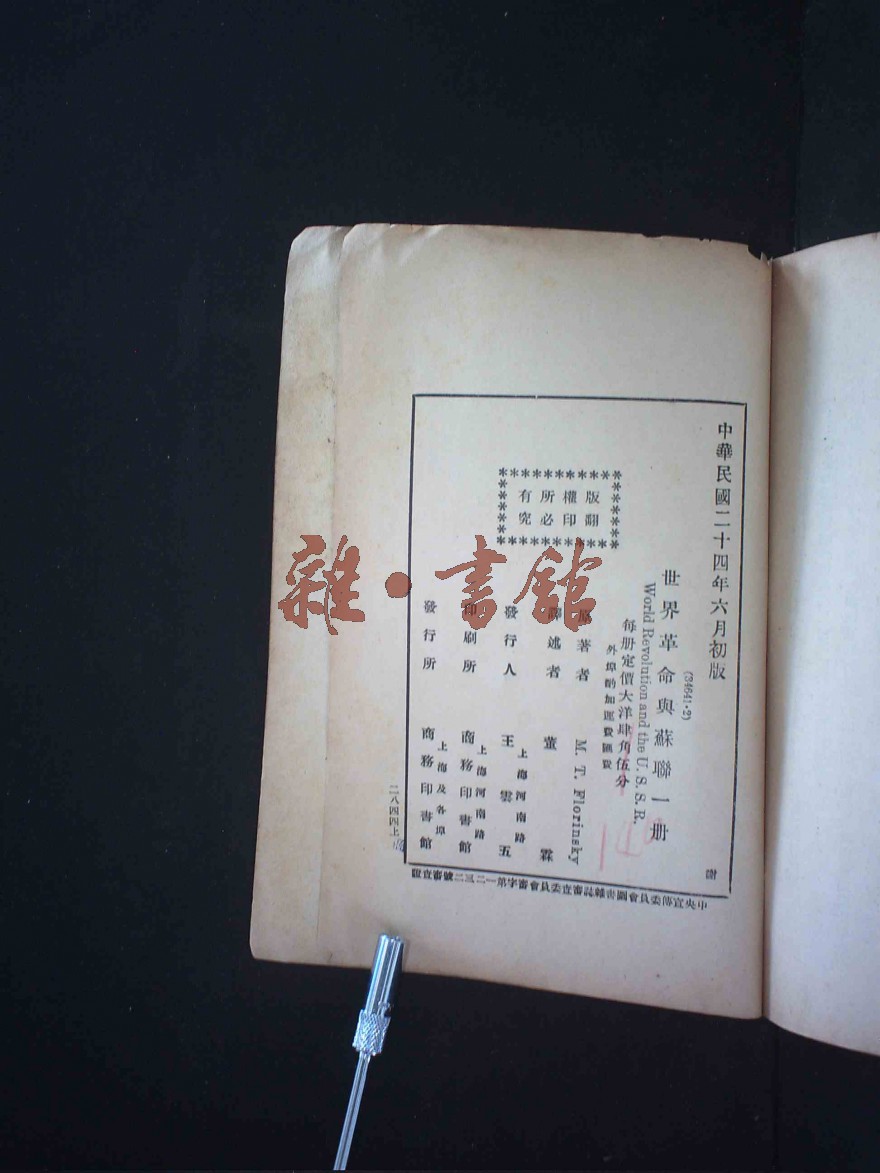 中華民國二十四年六月初版
(34641·2)
世界革命與蘇聯一册
World Revolution and the U. S. S. R.
每册定價大洋肆角伍分
外埠酌加運費匯費
版權所有
翻印必究
原著者 M. T. Florinsky
譯述者 董霖
發行人 王雲五
上海河南路
印刷所 商務印書館
上海河南路
發行所 商務印書館
上海及各埠
二八四四上
中央宣傳委員會圖書雜誌審查委員會審查證審字第一二三二號
雜·書館